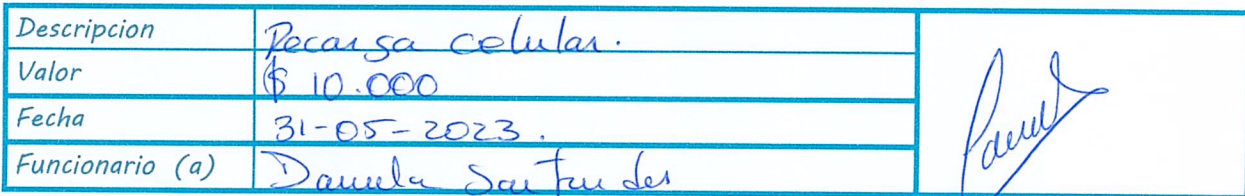 Descripcion Recarga celular.
Valor $ 10.000
Fecha 31-05-2023.
Funcionario (a) Daniela Santander